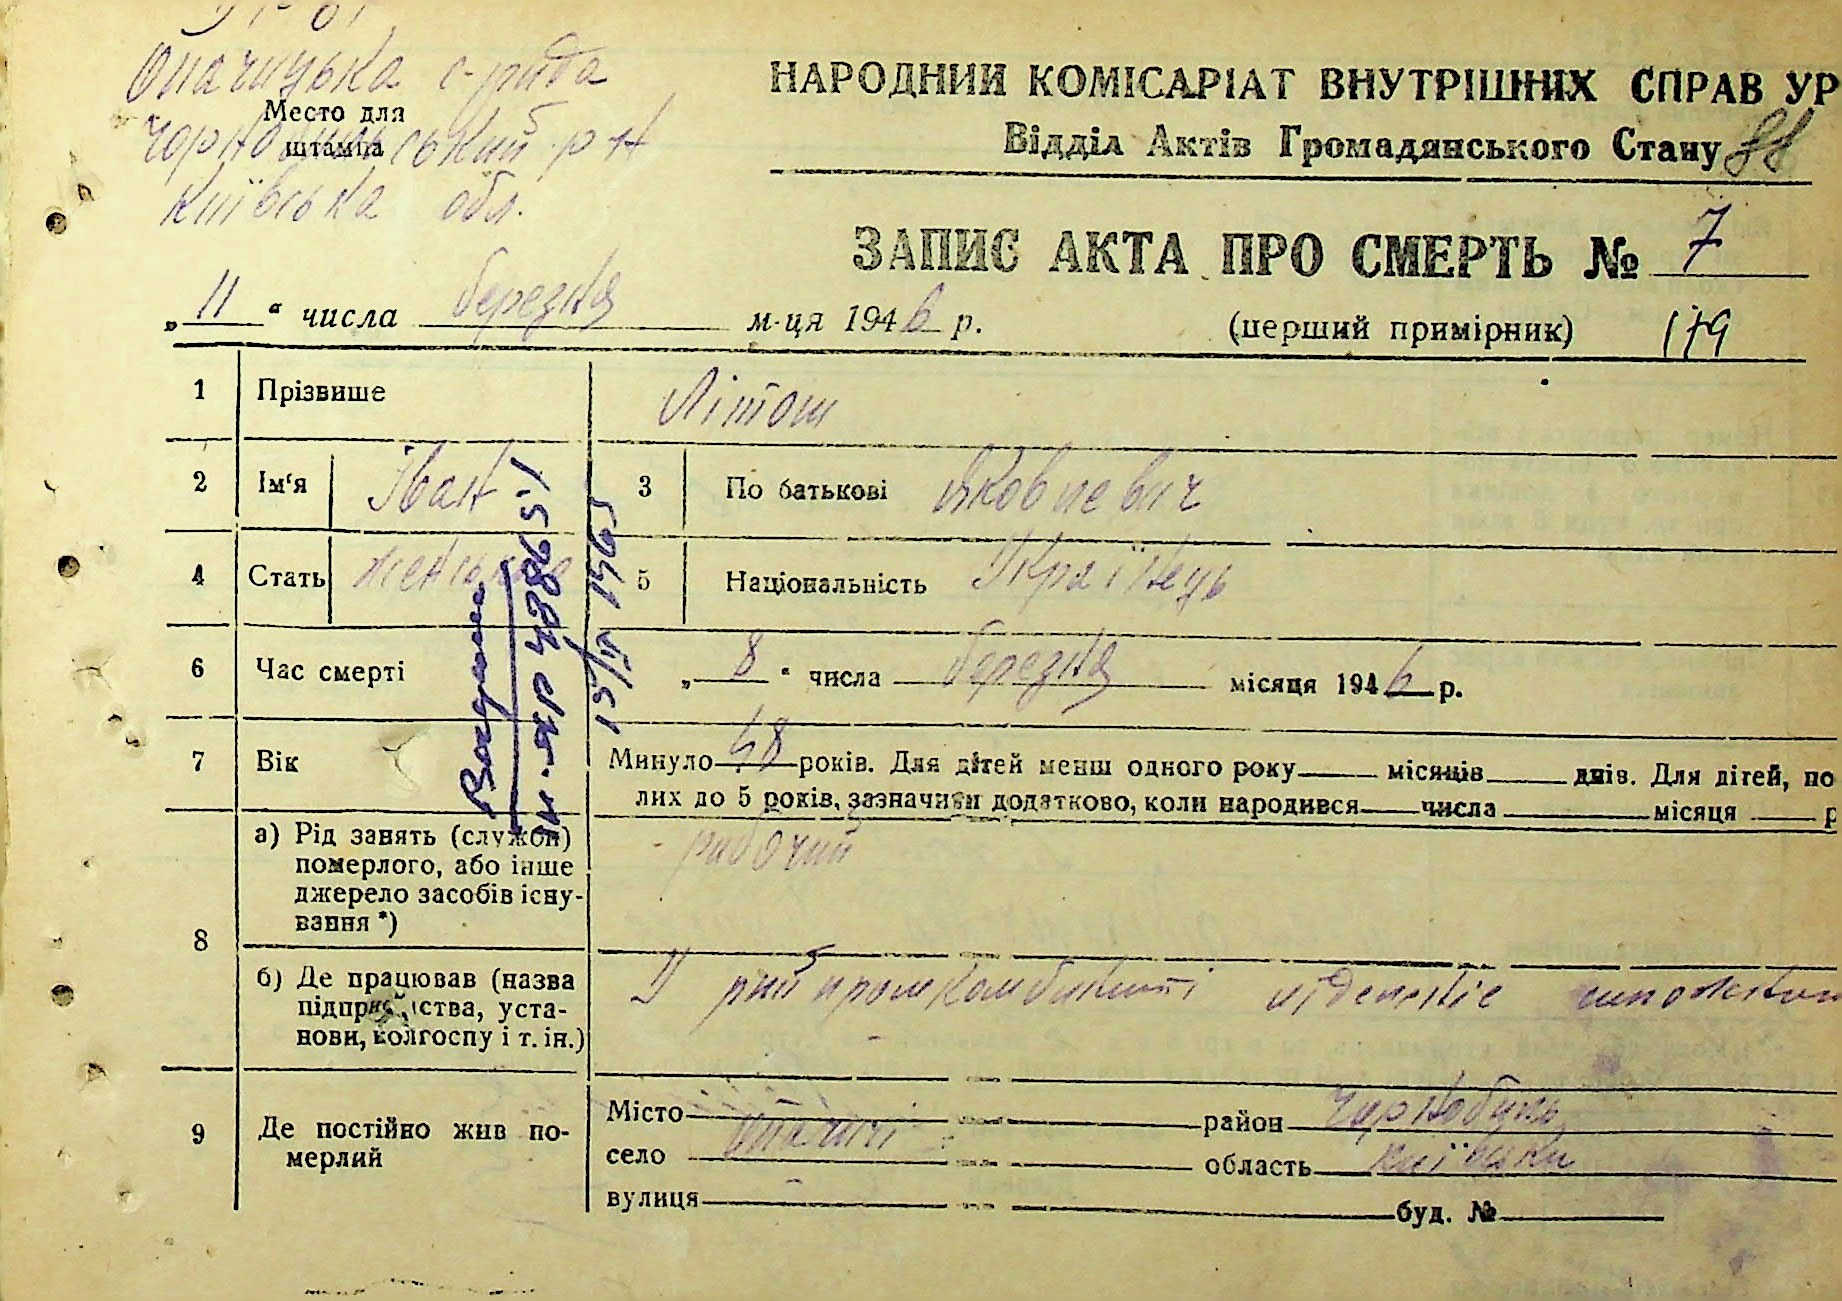 Опачицька с-рада
Место для
штампа
Чорнобильський р-н
Київська обл.
НАРОДНИЙ КОМІСАРІАТ ВНУТРІШНІХ СПРАВ УР
Відділ Актів Громадянського Стану 88
ЗАПИС АКТА ПРО СМЕРТЬ № 7
„ 11 “ числа березня м-ця 1946 р. (перший примірник) 179
1 Прізвише Літош
2 Ім'я Іван 3 По батькові Яковлевич
4 Стать 5 Національність Українець
6 Час смерті „ 8 “ числа березня місяця 1946 р.
7 Вік Минуло 48 років. Для дітей менш одного року місяців днів. Для дітей, по
лих до 5 років, зазначити додатково, коли народився числа місяця р
8 а) Рід занять (служби)
померлого, або інше
джерело засобів існу-
вання *)
рабочий
б) Де працював (назва
підприємства, уста-
нови, колгоспу і т. ін.)
У райпромкомбинаті
9 Де постійно жив по-
мерлий
Місто район Чорнобиль
село Опачичі область Київська
вулиця буд. №
15/VI 1965